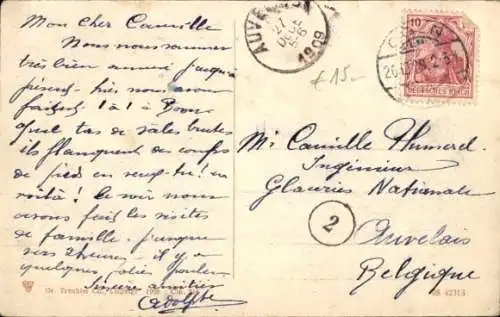 Mon cher Camille
Nous nous sommes
très bien amusé jusqu'à
présent - hier nous avons
fait 1 à 1 à Bonn
Quel tas de sales brutes
ils flanquent des coups
de pied en veux-tu! en
voilà! Ce soir nous
avons fait les visites
de famille. jusque
vers 2 heures - il y a
quelques jolies
Sincère amitiés
Adolphe
AUVELAIS
21
DÉC
1909
£15-
10
DEUTSCHES REICH
Mr Camille Humerel
Ingénieur
Glaceries Nationales
2
Auvelais
Belgique
Dr. Trenkler Co., Leipzig. 1909
42313